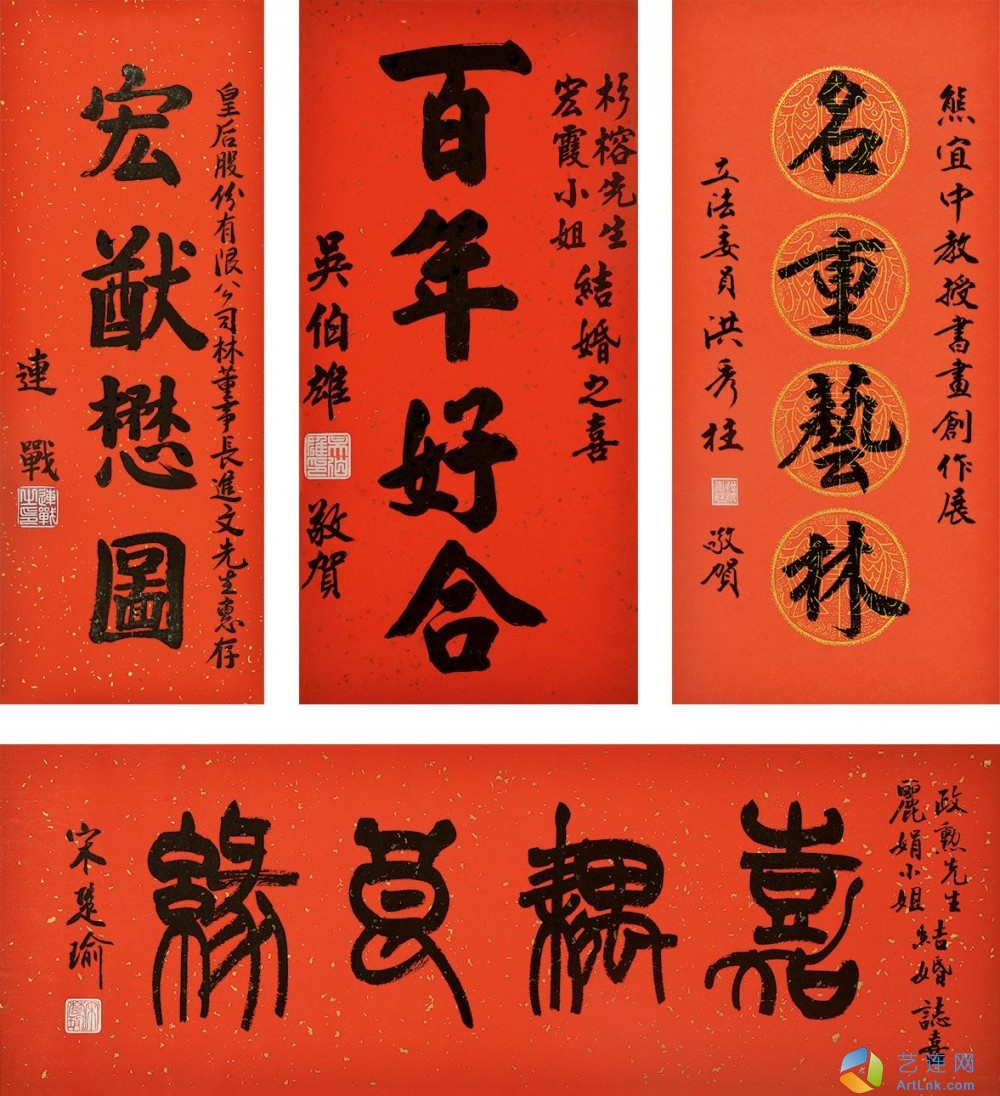 皇后股份有限公司林董事長進文先生惠存
宏猷懋圖
連戰
連戰之印
杉榕先生
宏霞小姐
結婚之喜
百年好合
吳伯雄
敬賀
熊宜中教授書畫創作展
名重藝林
立法委員洪秀柱
敬賀
政勲先生
麗娟小姐
結婚誌喜
嘉耦良緣
宋楚瑜
艺连网
ArtLnk.com